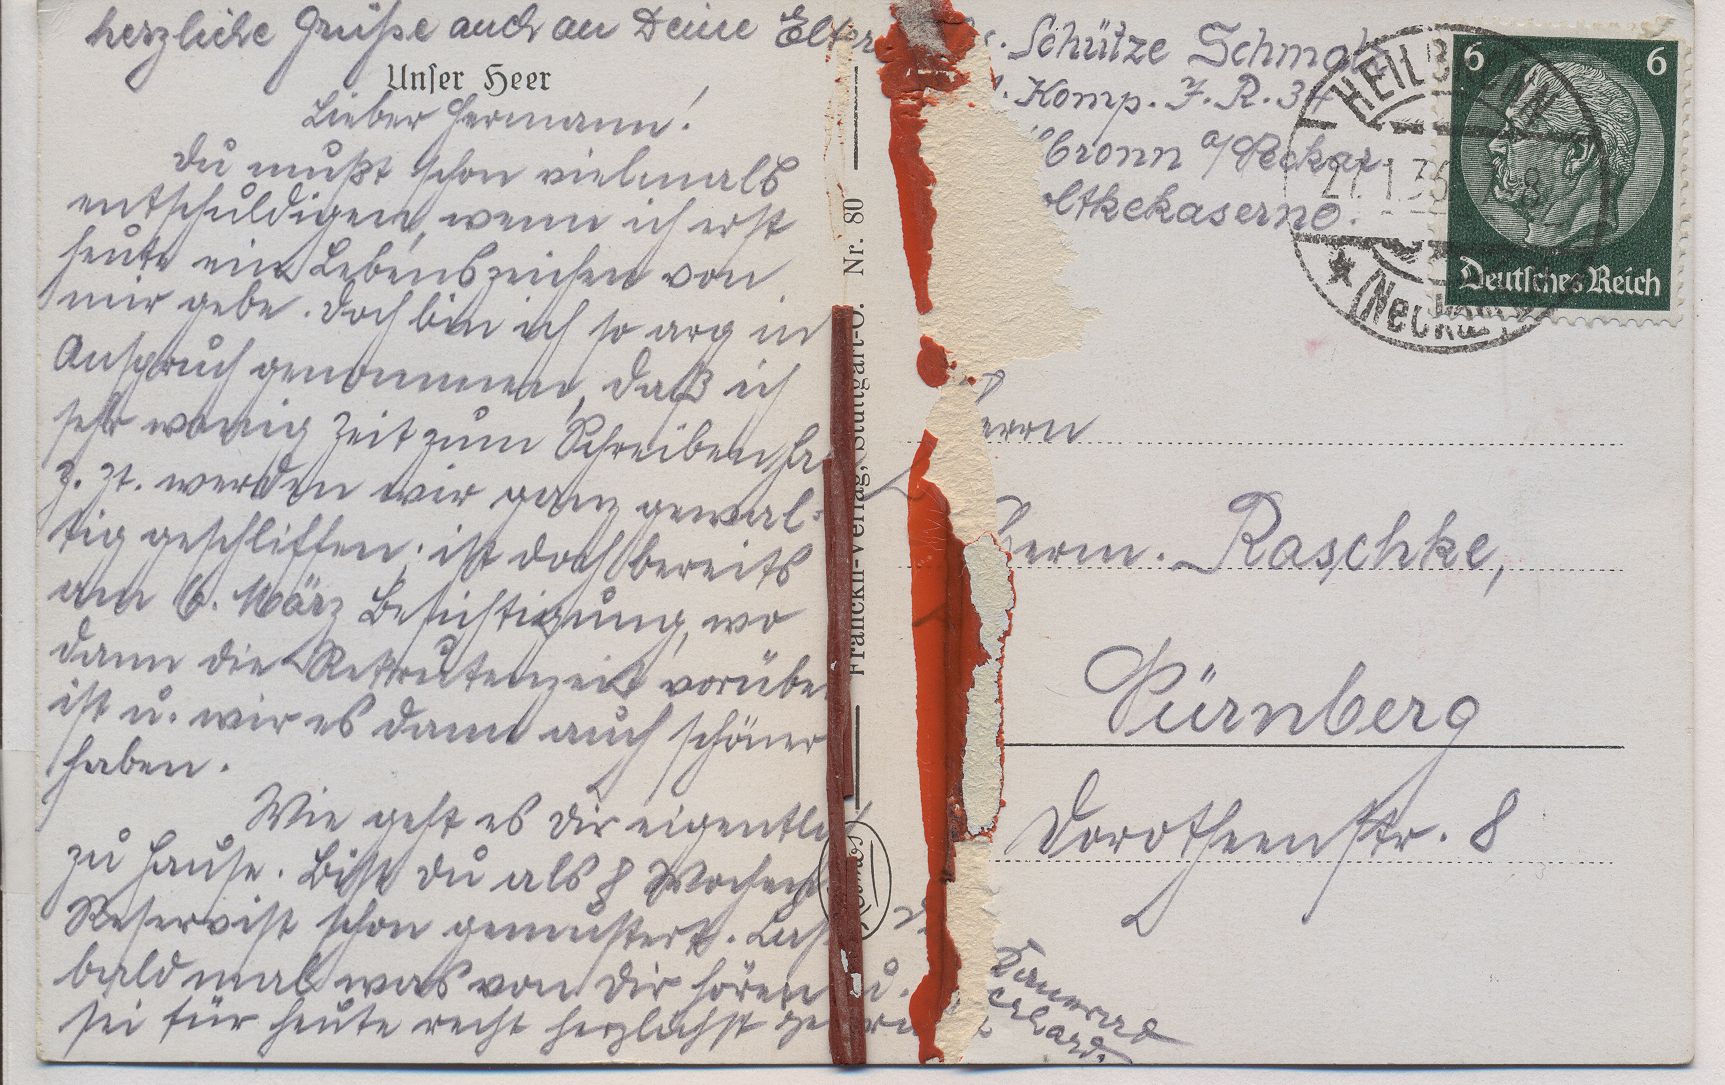 herzliche Grüße auch an Deine Elter
Unser Heer
Lieber Hermann!
Du mußt schon vielmals
entschuldigen, wenn ich erst
heute ein Lebenszeichen von
mir gebe. Doch bin ich so arg in
Anspruch genommen, daß ich
sehr wenig Zeit zum Schreiben ha
z. Zt. werden wir ganz gewal-
tig geschliffen; ist doch bereits
am 6. März Besichtigung, wo
dann die Rekrutenzeit vorüber
ist u. wir es dann auch schöner
haben.
Wie geht es Dir eigentlich
zu Hause. Bist Du als 8 Wochen
Reservist schon gemustert. Laß
bald mal was von Dir hören u.
sei für heute recht herzlichst
Kamerad
Franckh-Verlag, Stuttgart-O. Nr. 80
Schütze Schmalz
Komp. J. R. 34
lbronn a/Neckar
oltkekaserne.
HEILBRONN
(Neckar)
6 6
Deutsches Reich
errn
Herm. Raschke,
Nürnberg
Dorotheenstr. 8